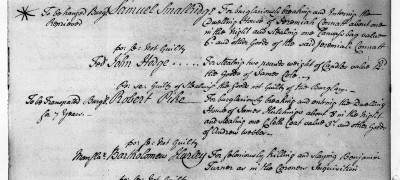 To be hanged Burg: Samuel Smallridge For burglariously breaking and Entering the
Reprieved Dwelling House of Jeremiah Connatt about one
in the Night and Stealing one Canvas bag value
6d. and other goods of the said Jeremiah Connatt
po: se: Not Guilty
Fel John Hodge For Stealing two pounds weight of Candles value 12d.
the Goods of James Cole
po: se: Guilty of Stealing the Goods not Guilty of the Burglary
To be Transported Burg: Robert Pike For burglariously breaking and entring the Dwelling
for 7 Years House of James Hutchings about 8 in the Night
and Stealing one Cloth Coat value 5s. and other Goods
of Andrew
po: se: Not Guilty
Mansl: Bartholomew Hurley For feloniously killing and slaying Benjamin
Turner as in the Coroners Inquisition